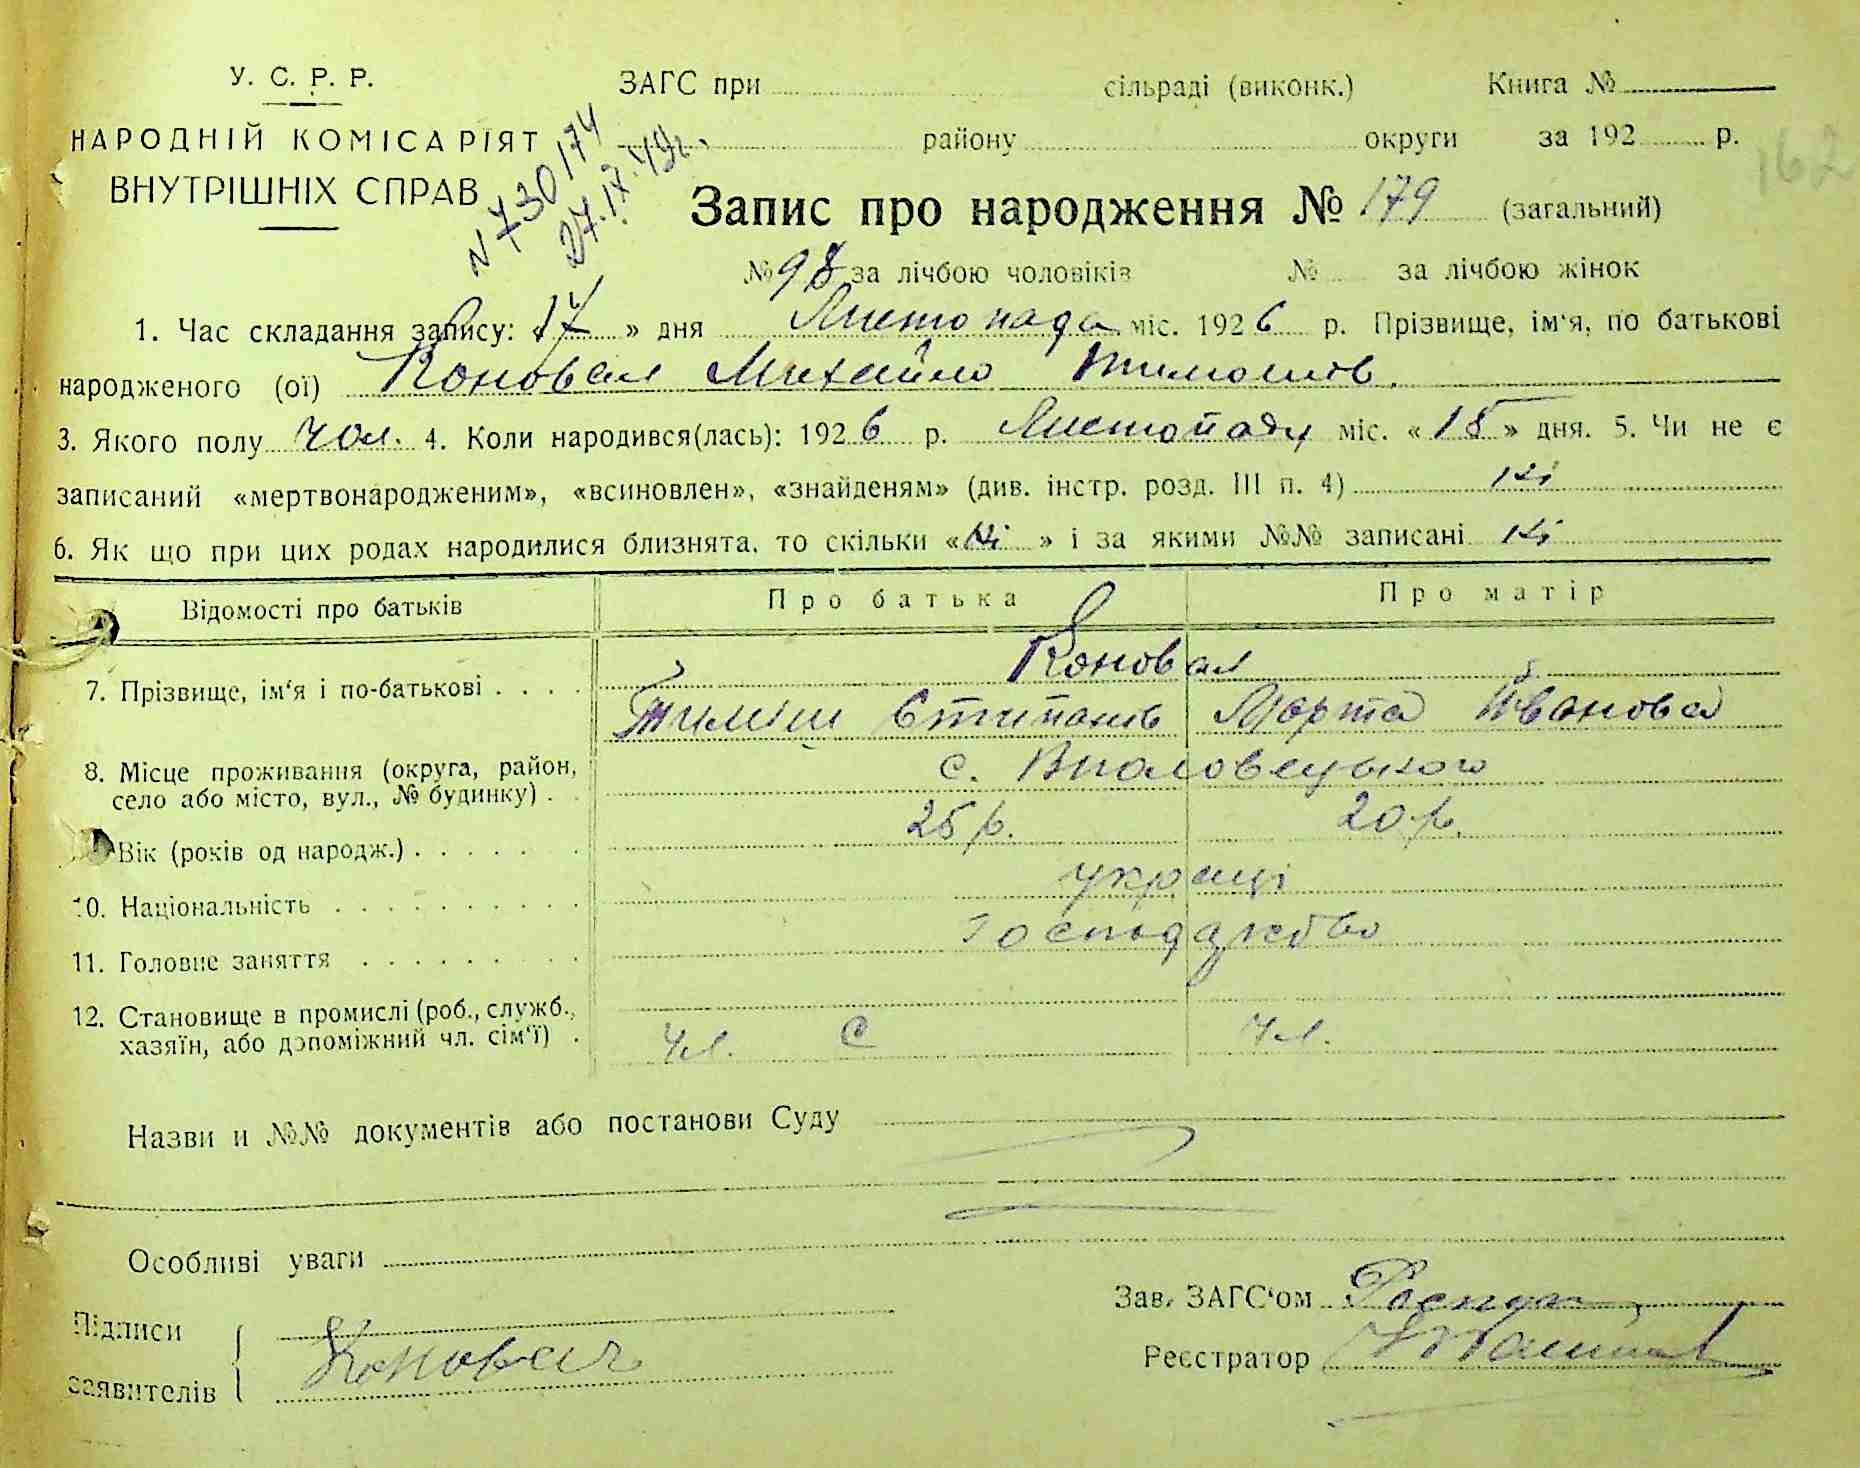 У. С. Р. Р.
НАРОДНІЙ КОМІСАРІЯТ
ВНУТРІШНІХ СПРАВ
N 730174
27.IX.49г.
ЗАГС при сільраді (виконк.) Книга №
району округи за 192 р.
162
Запис про народження № 179 (загальний)
№ 98 за лічбою чоловіків № за лічбою жінок
1. Час складання запису: «17» дня Листопада міс. 1926 р. Прізвище, ім'я, по батькові
народженого (ої) Коновал Михайло Тимошів.
3. Якого полу чол. 4. Коли народився(лась): 1926 р. Листопаду міс. «15» дня. 5. Чи не є
записаний «мертвонародженим», «всиновлен», «знайденям» (див. інстр. розд. III п. 4) Ні
6. Як що при цих родах народилися близнята, то скільки «Ні» і за якими №№ записані Ні
Відомості про батьків Про батька Про матір
7. Прізвище, ім'я і по-батькові . . . . Коновал
Тиміш Стипанів Марта Іванова
8. Місце проживання (округа, район,
село або місто, вул., № будинку) . . с.
Вік (років од народж.) . . . . . . 25 р. 20 р.
10. Національність . . . . . . . . . . українці
11. Головне заняття . . . . . . . . . Господарство
12. Становище в промислі (роб., служб.,
хазяїн, або допоміжний чл. сім'ї) . Чл. С Чл.
Назви и №№ документів або постанови Суду
Особливі уваги
Підписи
заявителів Коновал
Зав. ЗАГС'ом
Реєстратор